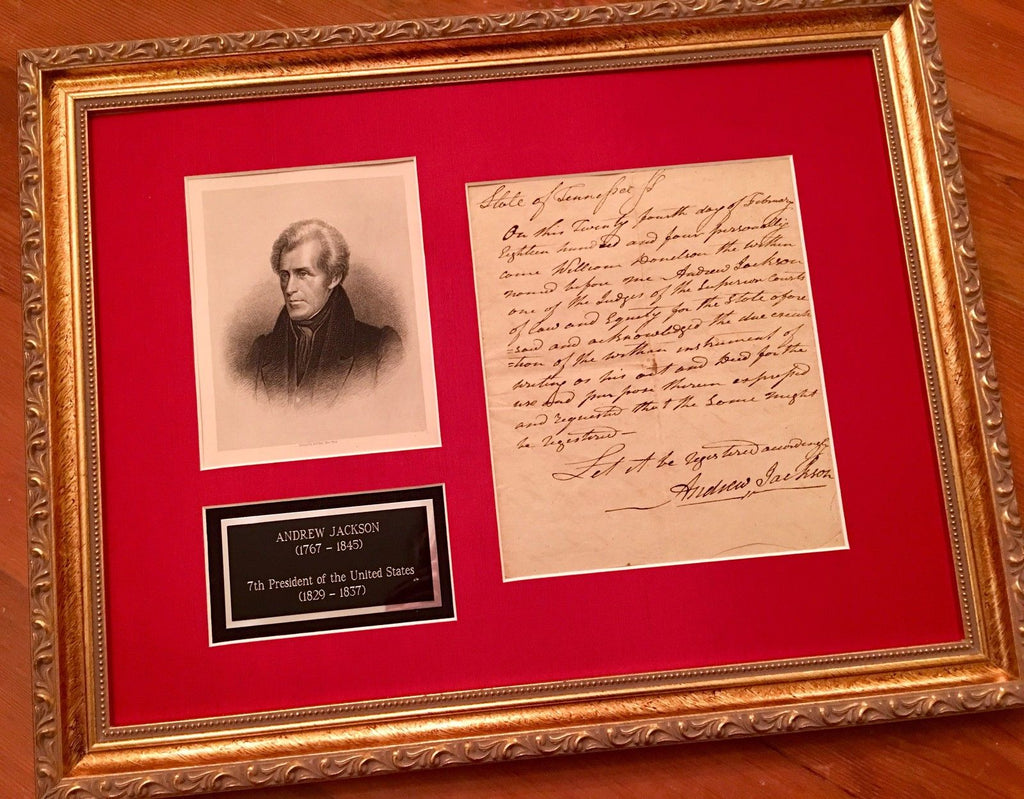 State of Tennessee Ss
On this Twenty fourth day of February
Eighteen hundred and four personally
came William Donelson the within
named before me Andrew Jackson
one of the Judges of the Superior Courts
of law and Equity for the State afore
=said and acknowledged the due execu
=tion of the within instrument of
writing as his act and Deed for the
use and purpose therein expressed
and requested that the same might
be registered
Let it be registered
Andrew Jackson
ANDREW JACKSON
(1767 – 1845)
7th President of the United States
(1829 – 1837)